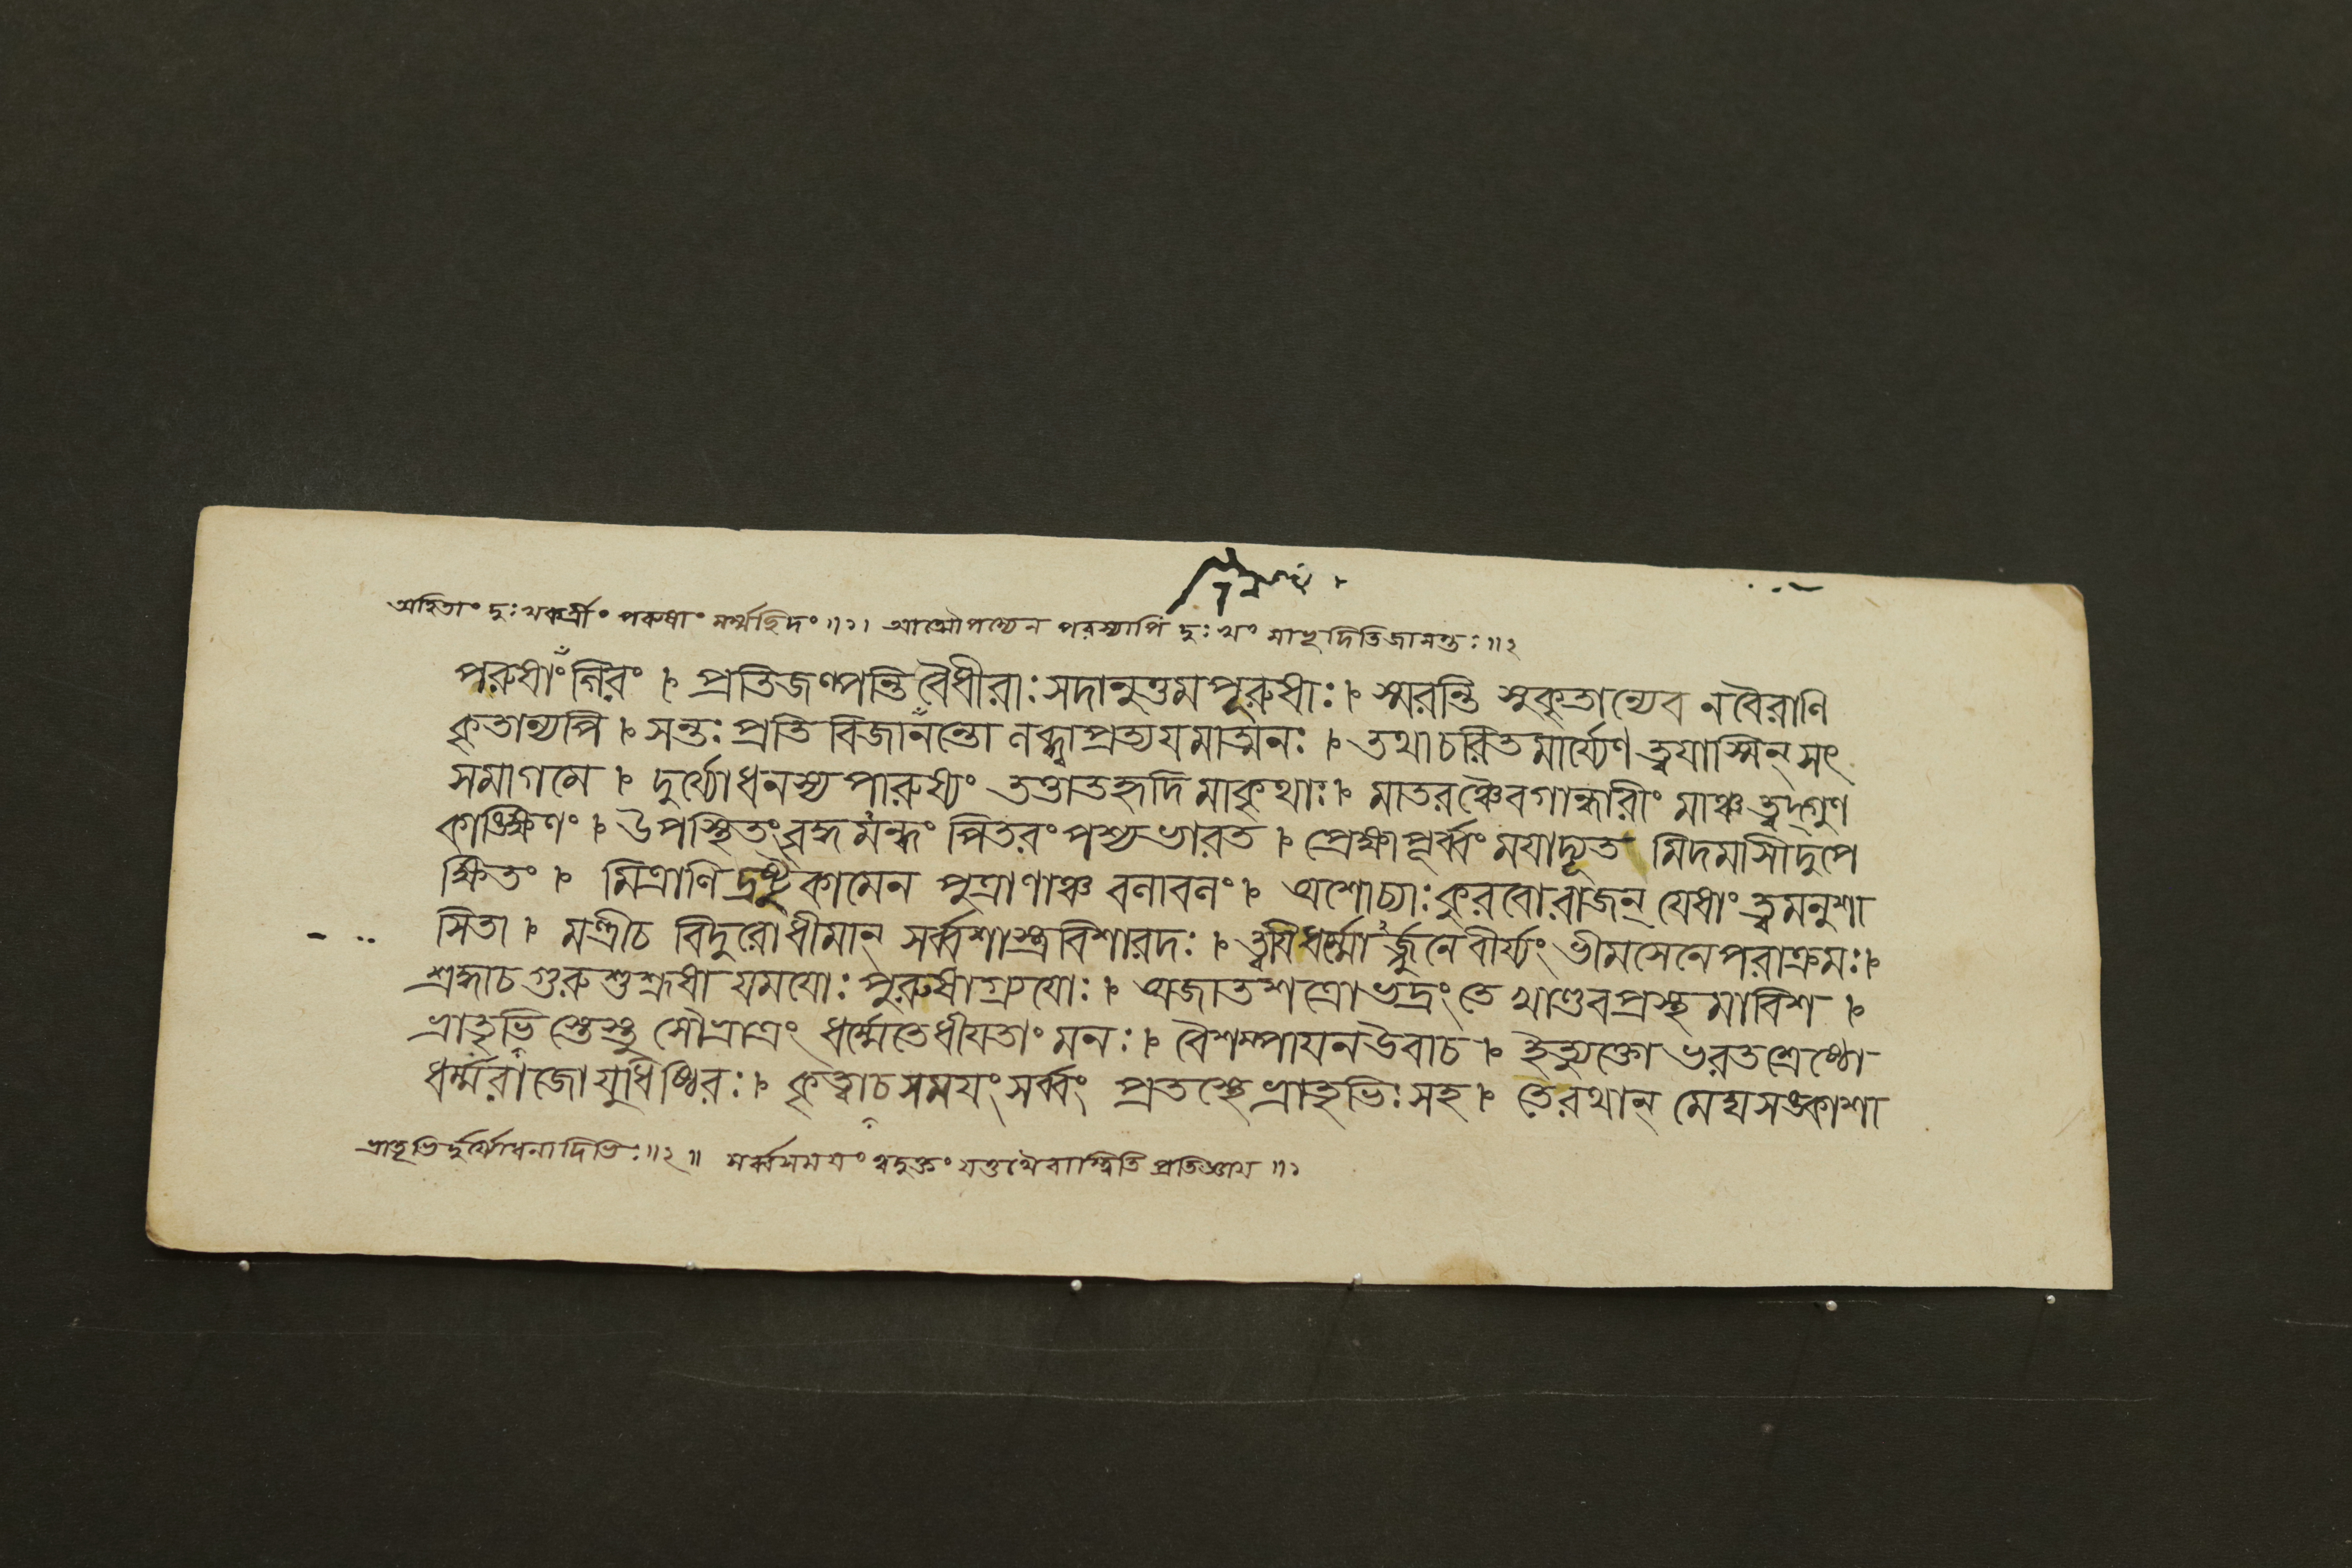 অহিতাং দুঃখকর্ত্রীং পরুষাং মর্ম্মছিদং॥১। আত্মৌপম্যেন পরস্যাপি দুঃখং মাভূদিতিজানন্তঃ॥২
পরুষাং গিরং । প্রতিজল্পন্তি বৈধীরাঃ সদানুত্তমপূরুষাঃ। স্মরন্তি সুকৃতান্যেব ন বৈরাণি
কৃতান্যপি । সন্তঃ প্রতি বিজানন্তো লব্ধ্বাপ্রত্যয়মাত্মনঃ । তথাচরিতমার্য্যেণ ত্বয়াস্মিন্ সৎ
সমাগমে । দুর্য্যোধনস্য পারুষ্যং তত্তাতহৃদি মাকৃথাঃ। মাতরঞ্চৈবগান্ধারীং মাঞ্চ ত্বদ্গুণ
কাঙ্ক্ষিণং । উপস্থিতং বৃদ্ধমন্ধং পিতরং পশ্য ভারত । প্রেক্ষাপূর্ব্বং ময়াদ্যূত মিদমাসীদুপে
ক্ষিতং । মিত্রাণি দ্রষ্টুকামেন পুত্রাণাঞ্চ বলাবলং। অশোচ্যাঃ কুরবোরাজন্ যেষাং ত্বমনুশা
সিতা । মন্ত্রীচ বিদুরোধীমান্ সর্ব্বশাস্ত্রবিশারদঃ । ত্বয়িধর্ম্মোঽর্জ্জুনেবীর্য্যং ভীমসেনেপরাক্রমঃ।
শ্রদ্ধাচ গুরুশুশ্রূষা যময়োঃ পুরুষাগ্র্যয়োঃ । অজাতশত্রোভদ্রং তে খাণ্ডবপ্রস্থমাবিশ ।
ভ্রাতৃভি স্তেস্তু সৌভ্রাত্রং ধর্ম্মেতেধীয়তাং মনঃ । বৈশম্পায়নউবাচ । ইত্যুক্তো ভরতশ্রেষ্ঠো
ধর্ম্মরাজো যুধিষ্ঠিরঃ । কৃত্বাচ সময়ং সর্ব্বং প্রতস্থে ভ্রাতৃভিঃ সহ । তেরথান্ মেঘসঙ্কাশা
ভ্রাতৃভির্দুর্য্যোধনাদিভিঃ॥২॥ সর্ব্বসময়ং ত্বদুক্তং যত্তথৈবাস্ত্বিতি প্রতিজ্ঞায়॥১